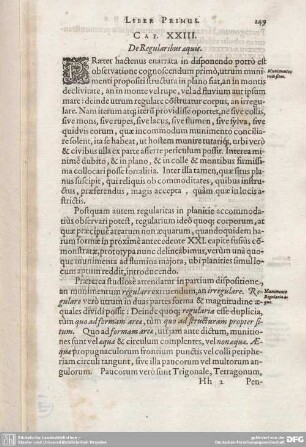 LIBER PRIMUS. 249
CAP. XXIII.
De Regularibus aquie.
PRæter hactenus enarrata in disponendo porrò est
observatione cognoscendum primò, utrum muni-
menti propositi structura in plano sit, an in montis
declivitate, an in monte vel rupe, vel ad fluvium aut ipsum
mare: deinde utrum regulare cōstruatur corpus, an irregu-
lare. Nam iterum atq; iterū providisse oportet, ne sive collis,
sive mons, sive rupes, sive lacus, sive flumen, sive sylva, sive
quidvis eorum, quæ incommodum munimento concilia-
re solent, ita se habeat, ut is hostem munire
& civibus ulla ex parte asserre periculum possit. Interea mi-
nimè dubito, & in plano, & in colle & montibus firmissima
collocari posse fortalitia. Inter illa tamen, quæ situs pla-
nus suscipit, qui reliquis ob commoditates, quibus instru-
ctus, præferendus, magis accepta, quàm quæ in locis a-
strictis.
Postquam autem regularitas in planitie accommoda-
tiùs observari potest, regularium ideò quoq; corporum, at-
que præcipuè arearum non æquarum, quandoquidem ha-
rum formæ in proximè antecedente XXI. capite satis cō-
monstratæ, prototypa nunc delineabimus, verùm una quo-
que munimenta ad flumina majora, ubi planities simul lo-
cum aptum reddit, introducendo.
Præterea studiosè attendatur, in partium dispositione,
an munimentum regulare excitendum, an irregulare. Re-
gulare verò utrum in duas partes forma & magnitudine æ-
quales dividi possit: Deinde quoq; regularia esse duplicia,
tùm quoad formam areæ, tùm quoad structuram proper si-
tum. Quo ad formam areæ, uti jam ante dictum, munitio-
nes sunt vel æquæ & circulum complentes, vel non æquæ. Æ-
quæ propugnaculorum frontium punctis vel colli periphe-
riam circuli tangunt, sive illa paucorum vel multorum an-
gulorum. Paucorum verò sunt Trigonale, Tetragonum,
Hh 2 Pen-
Munimentorum situs.
Munimenta
Regularia æ-
quæ.